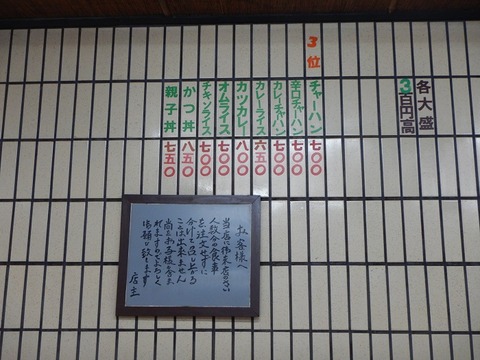 各大盛
3百円高
3位
チャーハン 七〇〇
辛口チャーハン 七〇〇
カレーチャハン 七〇〇
カレーライス 六五〇
カツカレー 八〇〇
オムライス 七〇〇
チキンライス 七〇〇
かつ丼 八五〇
親子丼 七五〇
お客様へ
人数分の食事
を注文せずに
ことは出来ません
店主